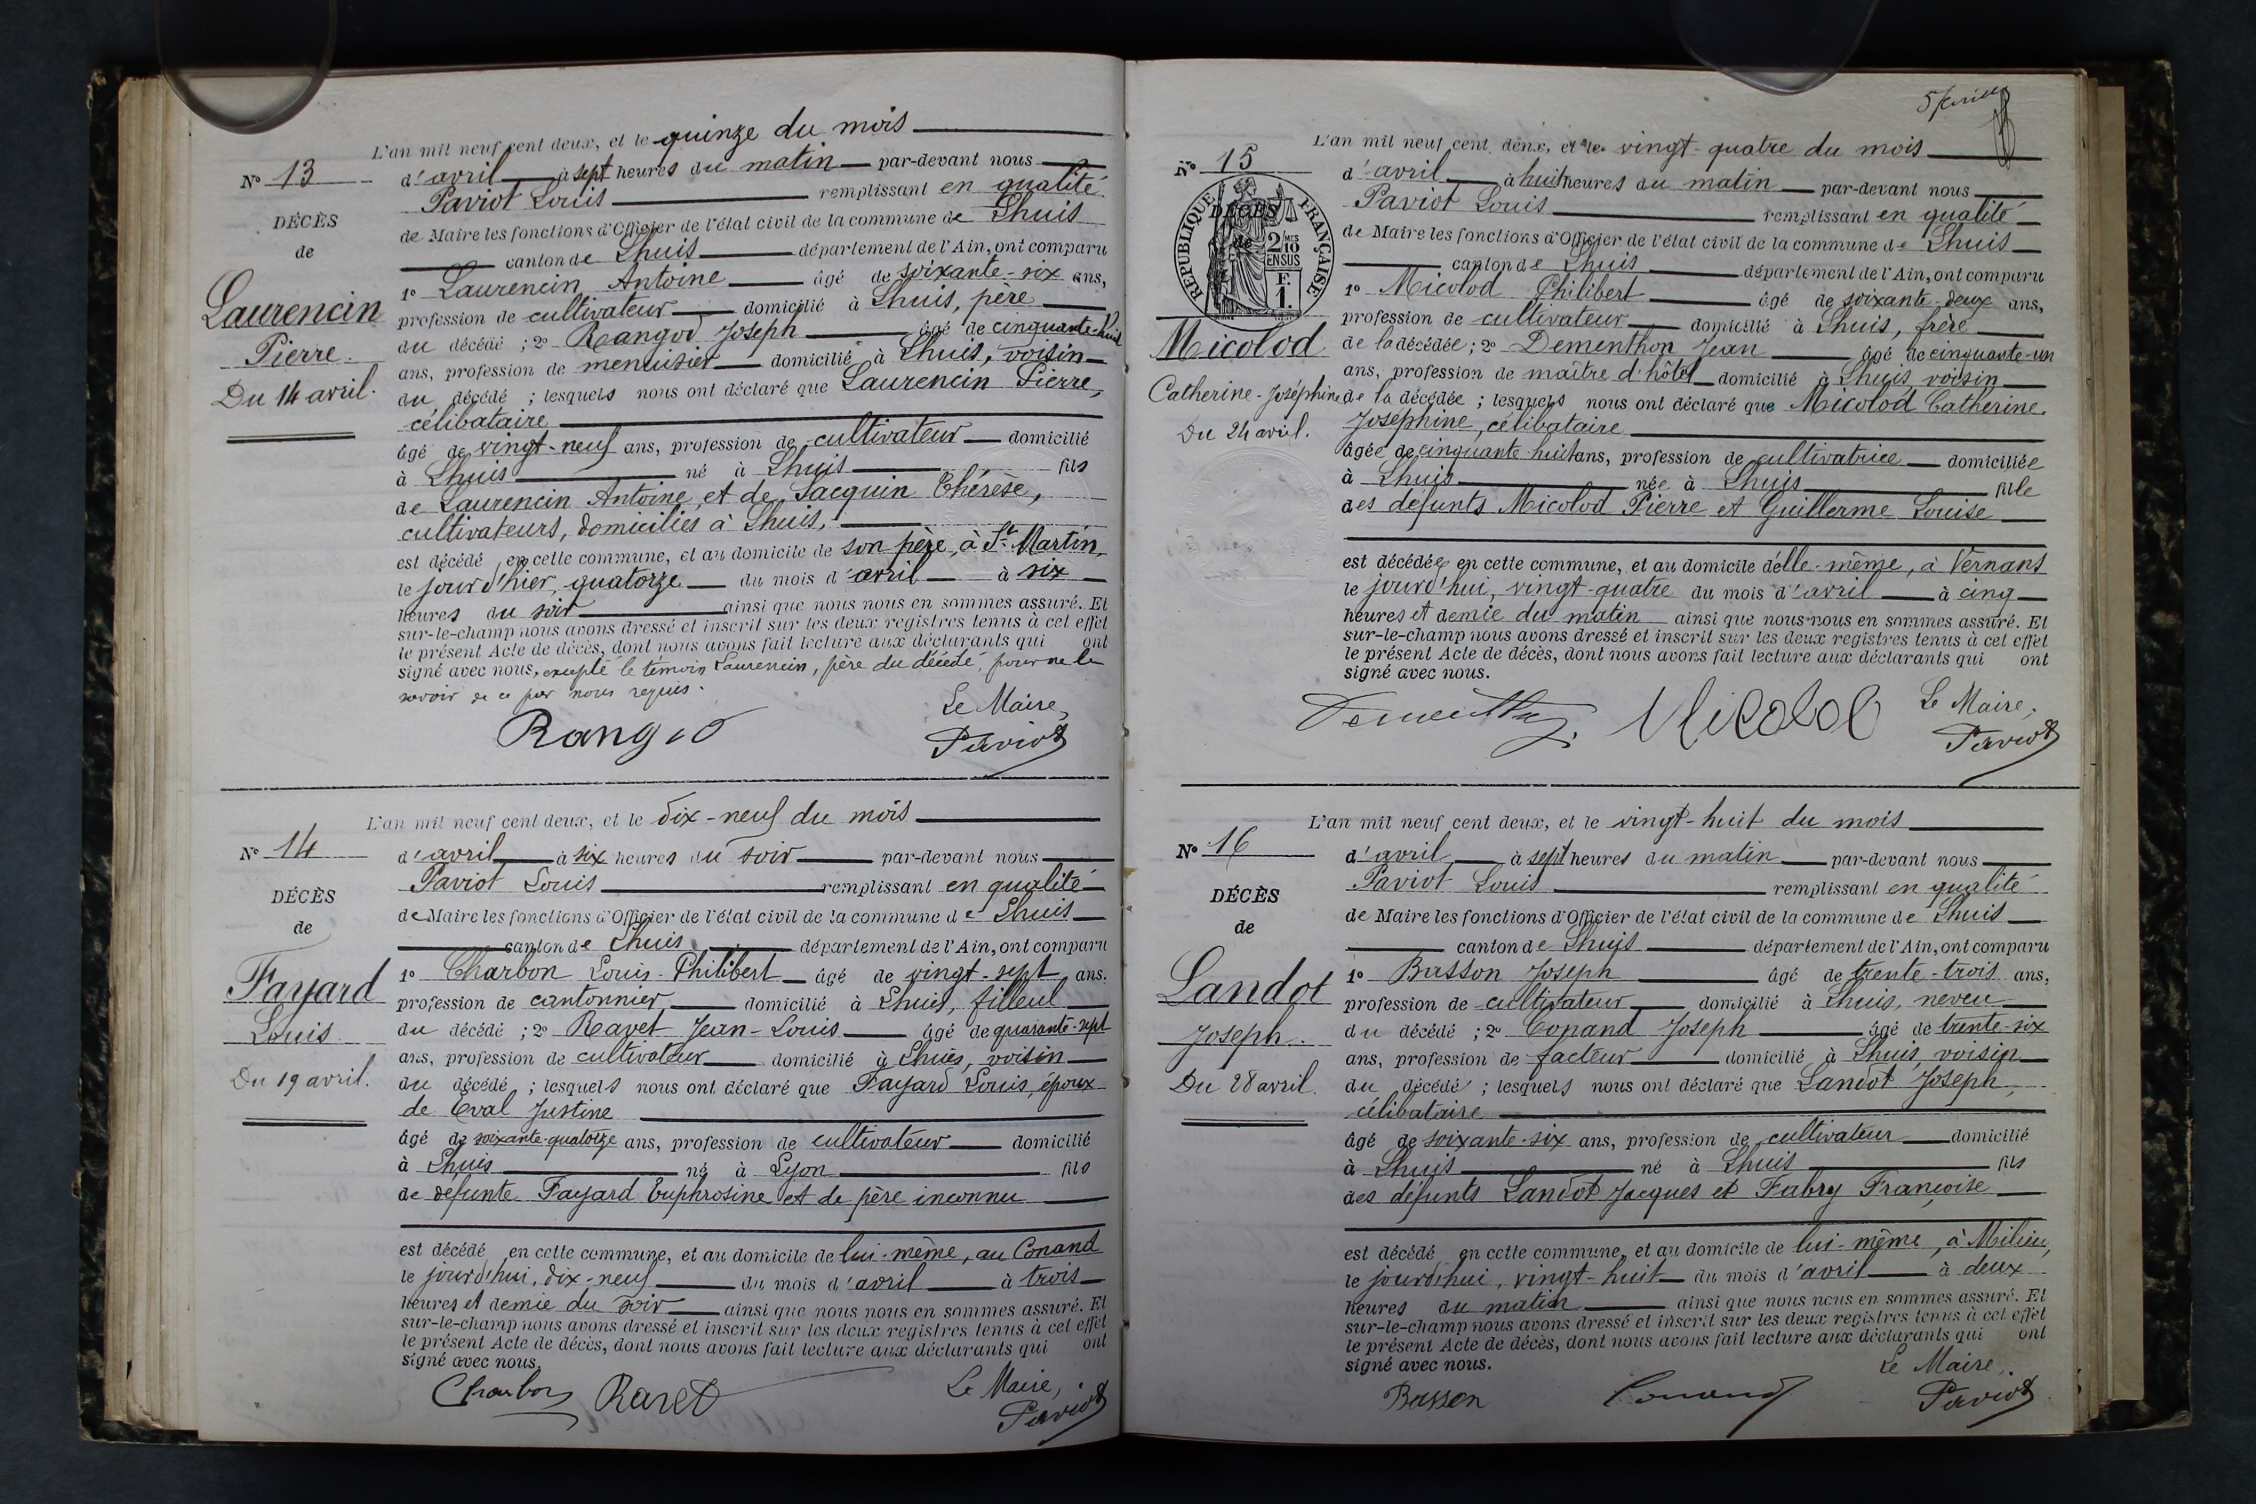 L'an mil neuf cent deux, et le quinze du mois
N° 13
d'avril à sept heures du matin par-devant nous
Paviot Louis remplissant en qualité
DÉCÈS
de Maire les fonctions d'Officier de l'état civil de la commune de Lhuis
de
canton de Lhuis département de l'Ain, ont comparu
1° Laurencin Antoine âgé de soixante-six ans,
Laurencin
profession de cultivateur domicilié à Lhuis, père
du décédé ; 2° Rangod Joseph âgé de cinquante-huit
Pierre
ans, profession de menuisier domicilié à Lhuis, voisin
Du 14 avril.
du décédé ; lesquels nous ont déclaré que Laurencin Pierre,
célibataire
âgé de vingt-neuf ans, profession de cultivateur domicilié
à Lhuis né à Lhuis fils
de Laurencin Antoine et de Jacquin Thérèse,
cultivateurs, domiciliés à Lhuis,
est décédé en cette commune, et au domicile de son père, à St Martin,
le jour d'hier, quatorze du mois d'avril à six
heures du soir ainsi que nous nous en sommes assuré. Et
sur-le-champ nous avons dressé et inscrit sur les deux registres tenus à cet effet
le présent Acte de décès, dont nous avons fait lecture aux déclarants qui ont
signé avec nous, excepté le témoin Laurencin, père du décédé, pour ne le
savoir de ce par nous requis.
Le Maire,
Rangod
Paviot
L'an mil neuf cent deux, et le dix-neuf du mois
N° 14
d'avril à six heures du soir par-devant nous
Paviot Louis remplissant en qualité
DÉCÈS
de Maire les fonctions d'Officier de l'état civil de la commune de Lhuis
de
canton de Lhuis département de l'Ain, ont comparu
1° Charbon Louis-Philibert âgé de vingt-sept ans.
Fayard
profession de cantonnier domicilié à Lhuis, filleul
Louis
du décédé ; 2° Ravet Jean-Louis âgé de quarante-sept
ans, profession de cultivateur domicilié à Lhuis, voisin
Du 19 avril.
du décédé ; lesquels nous ont déclaré que Fayard Louis, époux
de Eval Justine
âgé de soixante-quatorze ans, profession de cultivateur domicilié
à Lhuis né à Lyon fils
de défunte Fayard Euphrosine et de père inconnu
est décédé en cette commune, et au domicile de lui-même, au Conand
le jourd'hui, dix-neuf du mois d'avril à trois
heures et demie du soir ainsi que nous nous en sommes assuré. Et
sur-le-champ nous avons dressé et inscrit sur les deux registres tenus à cet effet
le présent Acte de décès, dont nous avons fait lecture aux déclarants qui ont
signé avec nous.
Le Maire,
Charbon Ravet
Paviot
L'an mil neuf cent deux, et le vingt-quatre du mois
N° 15
d'avril à huit heures du matin par-devant nous
Paviot Louis remplissant en qualité
RÉPUBLIQUE FRANÇAISE
DÉCÈS
2 MES 10 EN SUS
de Maire les fonctions d'Officier de l'état civil de la commune de Lhuis
de
canton de Lhuis département de l'Ain, ont comparu
F. 1.
1° Micolod Philibert âgé de soixante-deux ans,
profession de cultivateur domicilié à Lhuis, frère
Micolod
de la décédée ; 2° Dementhon Jean âgé de cinquante-un
ans, profession de maître d'hôtel domicilié à Lhuis, voisin
Catherine-Joséphine
de la décédée ; lesquels nous ont déclaré que Micolod Catherine-
Du 24 avril.
Joséphine, célibataire
âgée de cinquante-huit ans, profession de cultivatrice domiciliée
à Lhuis née à Lhuis fille
des défunts Micolod Pierre et Guillerme Louise
est décédée en cette commune, et au domicile d'elle-même, à Vernans
le jourd'hui, vingt-quatre du mois d'avril à cinq
heures et demie du matin ainsi que nous nous en sommes assuré. Et
sur-le-champ nous avons dressé et inscrit sur les deux registres tenus à cet effet
le présent Acte de décès, dont nous avons fait lecture aux déclarants qui ont
signé avec nous.
Le Maire,
Micolod
Paviot
L'an mil neuf cent deux, et le vingt-huit du mois
N° 16
d'avril à sept heures du matin par-devant nous
Paviot Louis remplissant en qualité
DÉCÈS
de Maire les fonctions d'Officier de l'état civil de la commune de Lhuis
de
canton de Lhuis département de l'Ain, ont comparu
1° Basson Joseph âgé de trente-trois ans,
Landot
profession de cultivateur domicilié à Lhuis, neveu
Joseph.
du décédé ; 2° Conand Joseph âgé de trente-six
ans, profession de facteur domicilié à Lhuis, voisin
Du 28 avril.
du décédé ; lesquels nous ont déclaré que Landot Joseph,
célibataire
âgé de soixante-six ans, profession de cultivateur domicilié
à Lhuis né à Lhuis fils
des défunts Landot Jacques et Fabry Françoise
est décédé en cette commune, et au domicile de lui-même, à Milieu,
le jourd'hui, vingt-huit du mois d'avril à deux
heures du matin ainsi que nous nous en sommes assuré. Et
sur-le-champ nous avons dressé et inscrit sur les deux registres tenus à cet effet
le présent Acte de décès, dont nous avons fait lecture aux déclarants qui ont
signé avec nous.
Le Maire,
Basson Conand Paviot